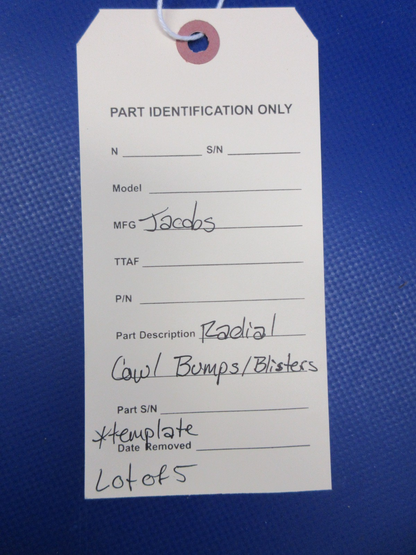 PART IDENTIFICATION ONLY
N S/N
Model
MFG Jacobs
TTAF
P/N
Part Description Radial
Cowl Bumps/Blisters
Part S/N
*template
Date Removed
Lot of 5